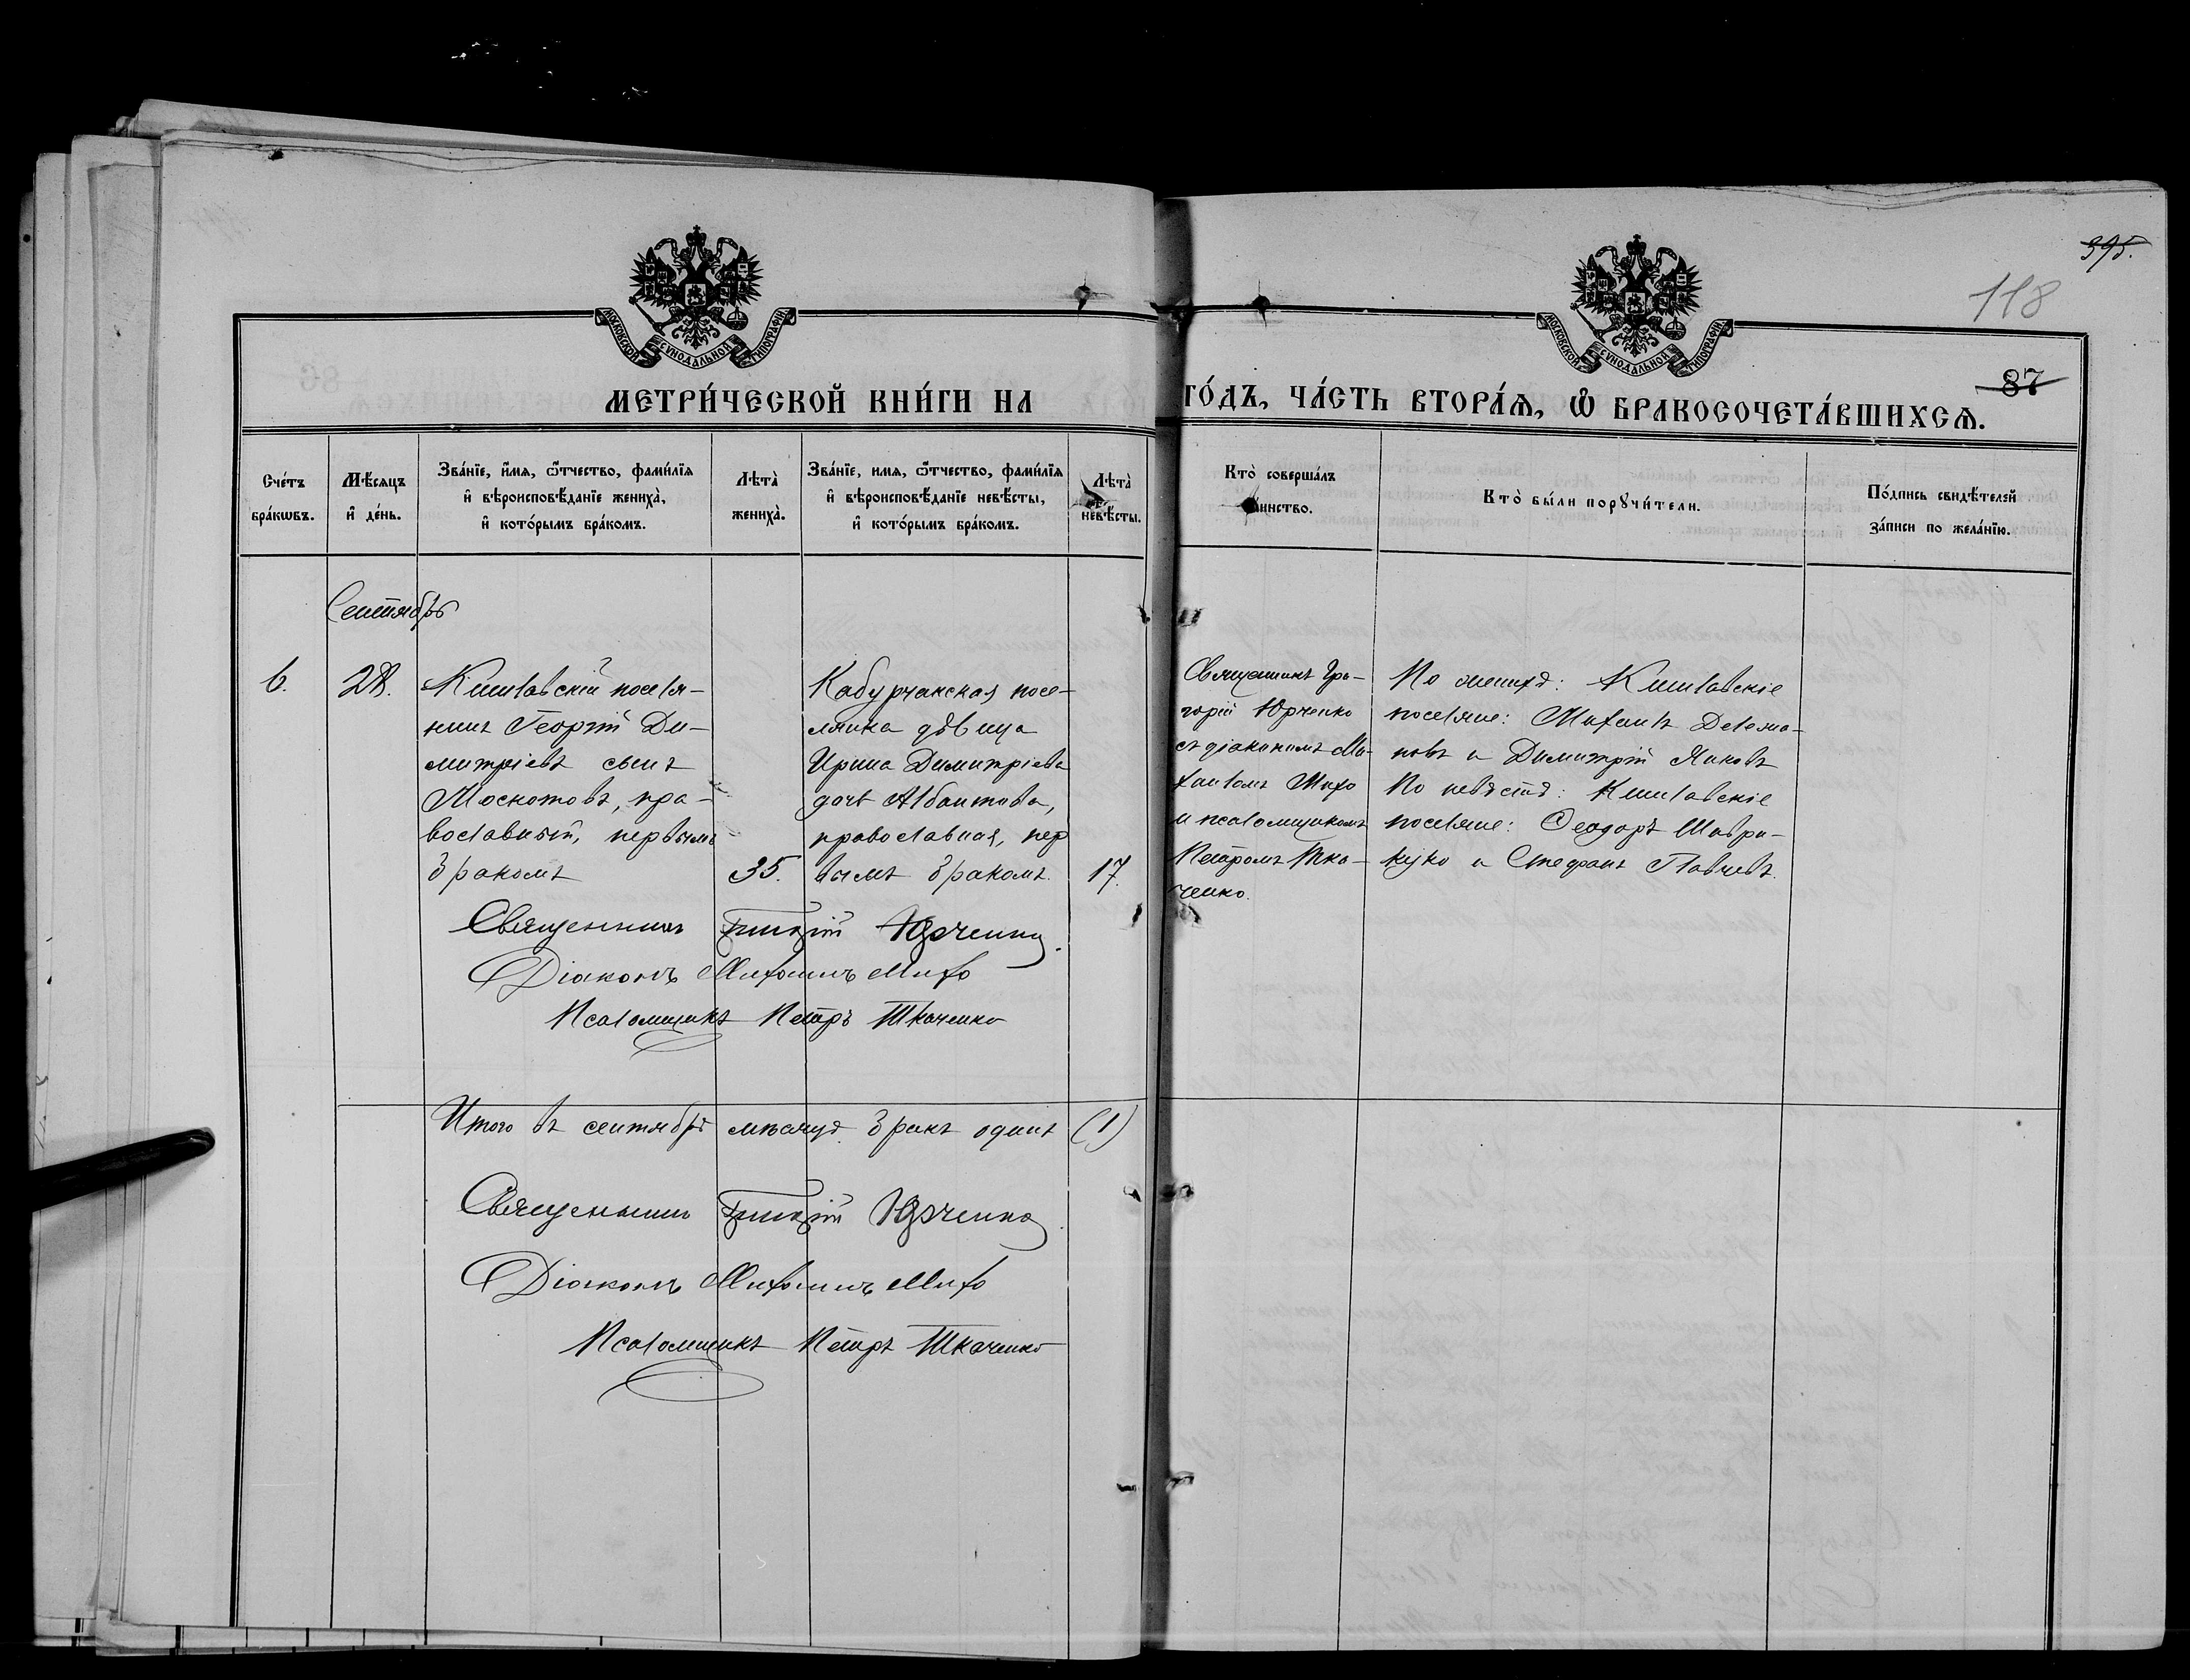 395.
118
87
МОСКОВСКОЙ СѴНОДАЛЬНОЙ ТИПОГРАФІИ
МОСКОВСКОЙ СѴНОДАЛЬНОЙ ТИПОГРАФІИ
МЕТРИ́ЧЕСКОЙ КНИ́ГИ НА ГО́ДЪ, ЧА́СТЬ ВТОРА́Ѧ, Ѽ БРАКОСОЧЕТА́ВШИХСѦ.
Сче́тъ
бра́кѡвъ.
Мѣ́сяцъ
и҆ де́нь.
Зва́нїе, и҆́мѧ, ѻ҆́тчество, фами́лїѧ
и҆ вѣроисповѣ́данїе жениха̀,
и҆ кото́рымъ бра́комъ.
Лѣта̀
жениха̀.
Зва́нїе, имѧ, ѻ҆́тчество, фами́лїѧ
и҆ вѣроисповѣ́данїе невѣ́сты,
и҆ кото́рымъ бра́комъ.
Лѣта̀
невѣ́сты.
Кто̀ соверша́лъ
инство.
Кто̀ бы́ли порꙋчи́тели.
По́дпись свидѣ́телей
за́писи по жела́нїю.
Сентябрь
6.
28.
поселя-
нинъ Георгій Ди-
митріевъ сынъ
Москотовъ, пра-
вославный, первымъ
бракомъ
35.
Кабурчакская посе-
лянка дѣвица
Ирина Димитріева
дочь
православная, пер
вымъ бракомъ.
17.
Священникъ Гри-
горій Юрченко
съ діакономъ Ми-
хаиломъ Михо
и псаломщикомъ
Петромъ Тка-
ченко.
По женихѣ:
поселяне: Михаилъ
и Димитрій Янковъ
По невѣстѣ:
поселяне: Ѳеодоръ
и Стефанъ
Священникъ Григорій Юрченко.
Діаконъ Михаилъ Михо
Псаломщикъ Петръ Ткаченко
Итого въ сентябрѣ мѣсяцѣ бракъ одинъ (1)
Священникъ Григорій Юрченко.
Діаконъ Михаилъ Михо
Псаломщикъ Петръ Ткаченко